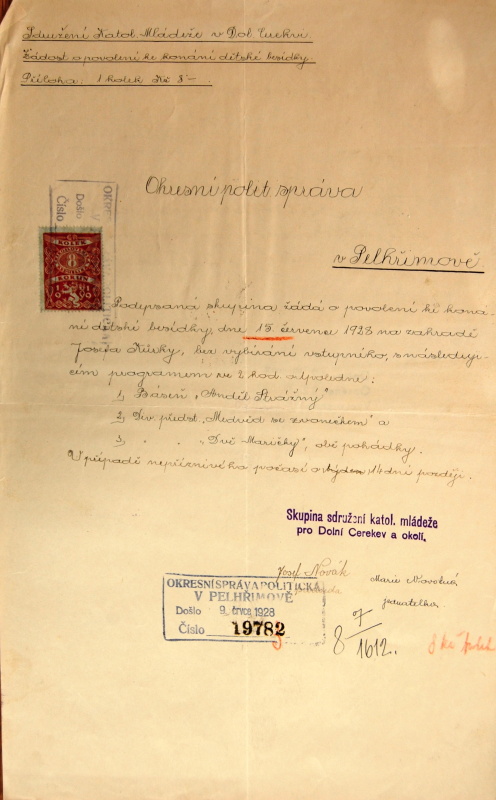 Sdružení Katol. Mládeže v Dol. Cerekvi.
Žádost o povolení ke konání dětské besídky.
Příloha: 1 kolek Kč 8-.
Okresní polit. správa
v Pelhřimově
OKRES
Došlo
Číslo
KOLEK
8
KORUN
Podepsaná skupina žádá o povolení ke koná-
ní dětské besídky, dne 15. července 1928 na zahradě
Josefa, bez vybírání vstupného, s následují-
cím programem ve 2 hod. odpoledne:
1) Báseň „Anděl Strážný"
2) Div. předst. „Medvid se zvonečkem" a
3) " " „Dvě Maričky", obě pohádky.
V případě nepříznivého počasí o týden, 14 dní později.
Skupina sdružení katol. mládeže
pro Dolní Cerekev a okolí.
Josef Novák
Marie Novotná
jednatelka.
OKRESNÍ SPRÁVA POLITICKÁ
V PELHŘIMOVĚ
Došlo 9. črvce 1928
Číslo 19782
8/7
1612..
8 Kč